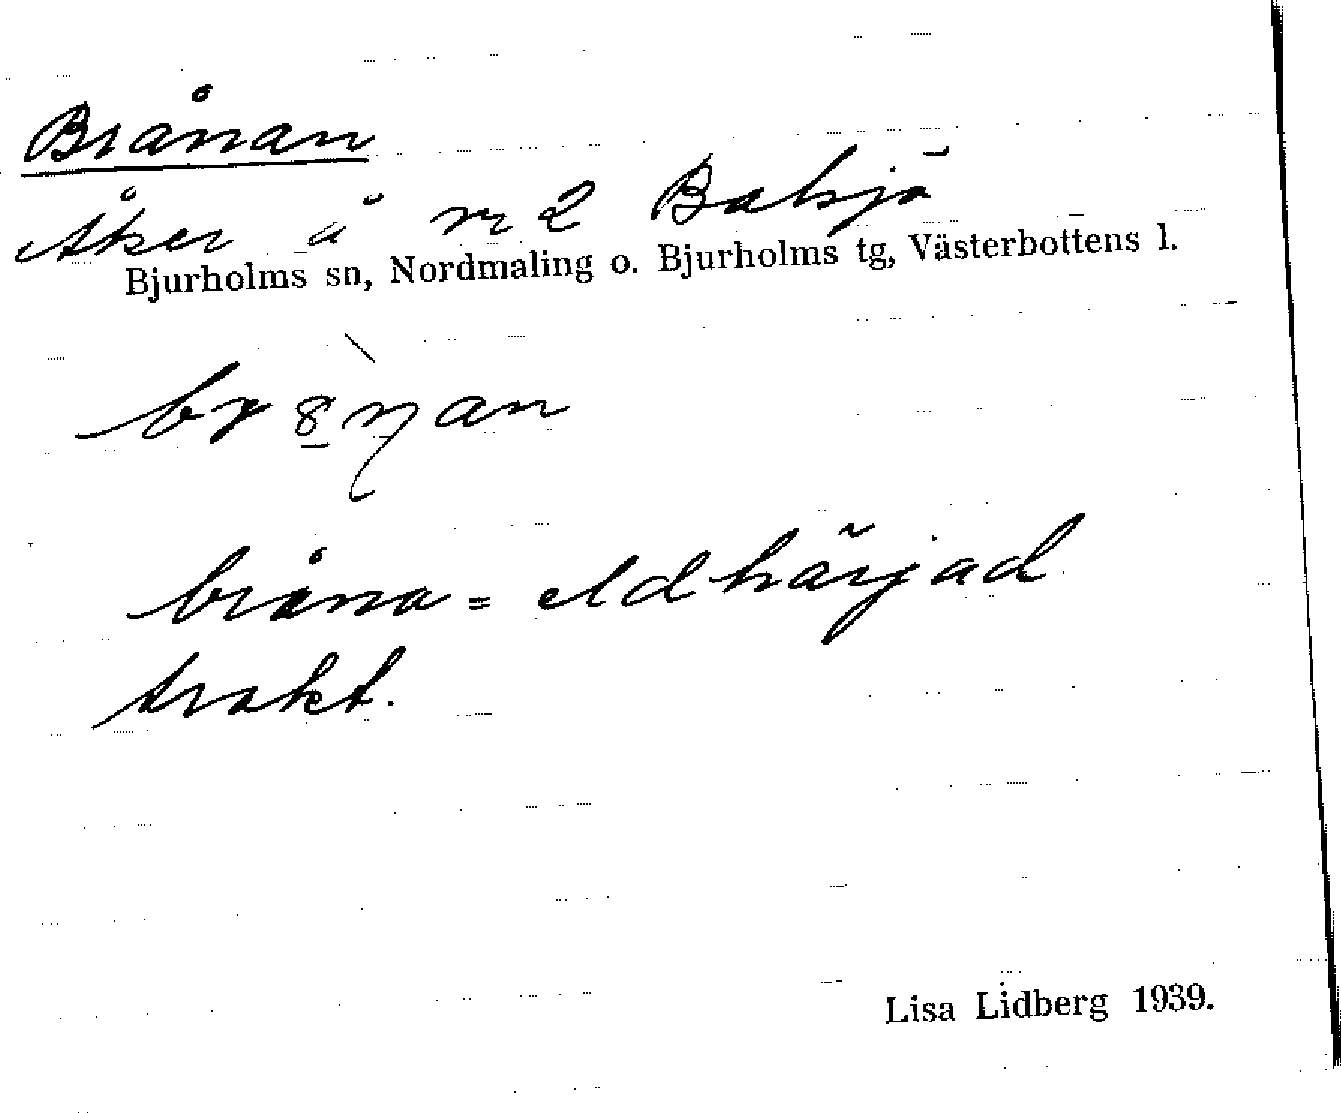 Brånan
Åker å nr 2 Baksjö
Bjurholms sn, Nordmaling o. Bjurholms tg, Västerbottens l.
bråna = eldhärjad
trakt.
Lisa Lidberg 1939.